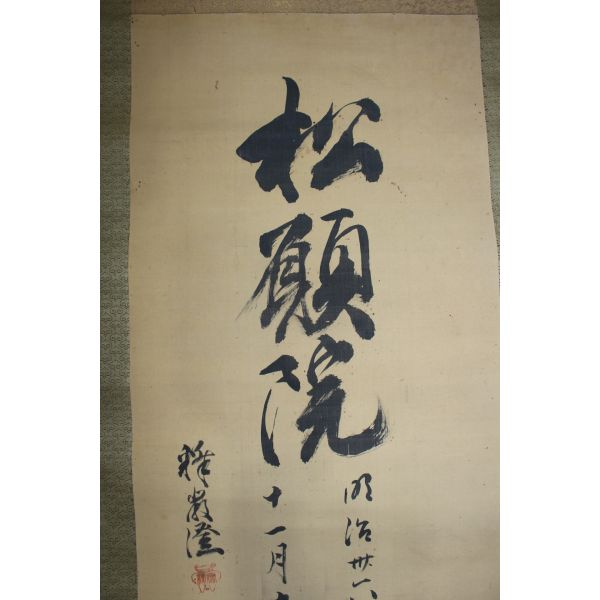 松願院
明治卅一
十一月
釋嚴澄